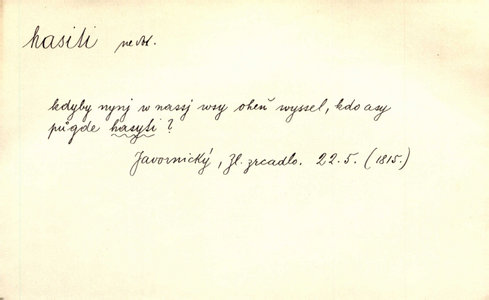 hasiti nedok.
kdyby nynj w nassj wsy oheň wyssel, kdo asy
půgde hasyti?
Javornický, Zl. zrcadlo. 22.5. (1815.)